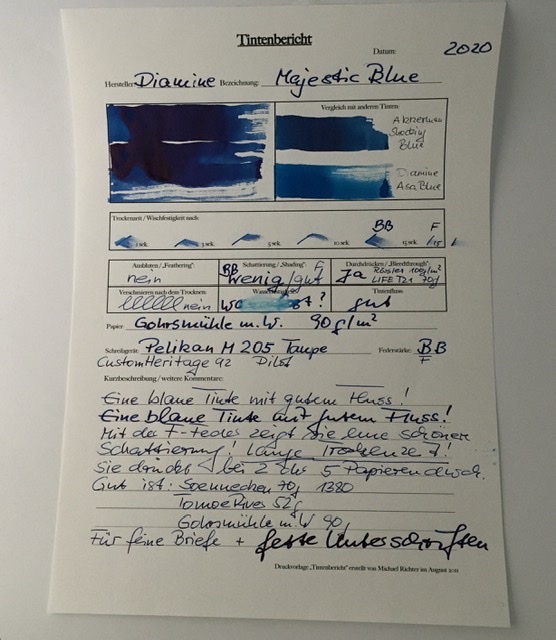 Tintenbericht
Datum: 2020
Hersteller Diamine Bezeichnung: Majestic Blue
Vergleich mit anderen Tinten:
Akkerman
Shocking
Blue
Diamine
Asa Blue
Trockenzeit / Wischfestigkeit nach:
BB F
1 sek. 3 sek. 5 sek. 10 sek. 15 sek. /15
Ausbluten / „Feathering“: Schattierung / „Shading“: Durchdrücken / „Bleedthrough“:
nein BB wenig / gut F Ja 100g/m²
LIFE 70g
Verschmieren nach dem Trocknen: Tintenfluss:
nein ? gut
Papier: Gohrsmühle m.W. 90g/m²
Schreibgerät: Pelikan M205 Taupe Federstärke: BB
Custom Heritage 92 Pilot F
Kurzbeschreibung / weitere Kommentare:
Eine blaue Tinte mit gutem Fluss!
Eine blaue Tinte mit gutem Fluss!
Mit der F-Feder zeigt sie eine schöne
Schattierung! Lange Trockenzeit!
Sie drückt bei 2 der 5 Papieren durch.
Gut ist: Soennecken 70g 1380
Tomoe River 52g
Gohrsmühle m.W 90g
Für feine Briefe + fette Unterschriften
Druckvorlage „Tintenbericht“ erstellt von Michael Richter im August 2011